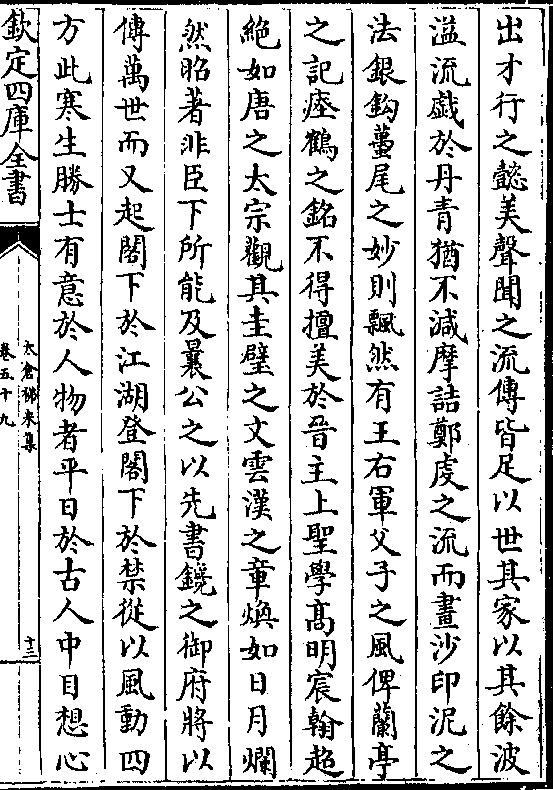 出才行之懿美聲聞之流傳皆足以世其家以其餘波
溢流戯於丹青猶不減摩詰鄭䖍之流而畫沙印泥之
法銀鈎蠆尾之妙則飄然有王右軍父子之風俾蘭亭
之記瘞鶴之銘不得擅美於晉主上聖學髙明宸翰超
絶如唐之太宗觀其圭璧之文雲漢之章煥如日月爛
然昭著非臣下所能及曩公之以先書鏡之御府將以
傳萬世而又起閤下於江湖登閤下於禁從以風動四
方此寒生勝士有意於人物者平日於古人中目想心
欽定四庫全書
太倉稊米集
卷五十九
十三